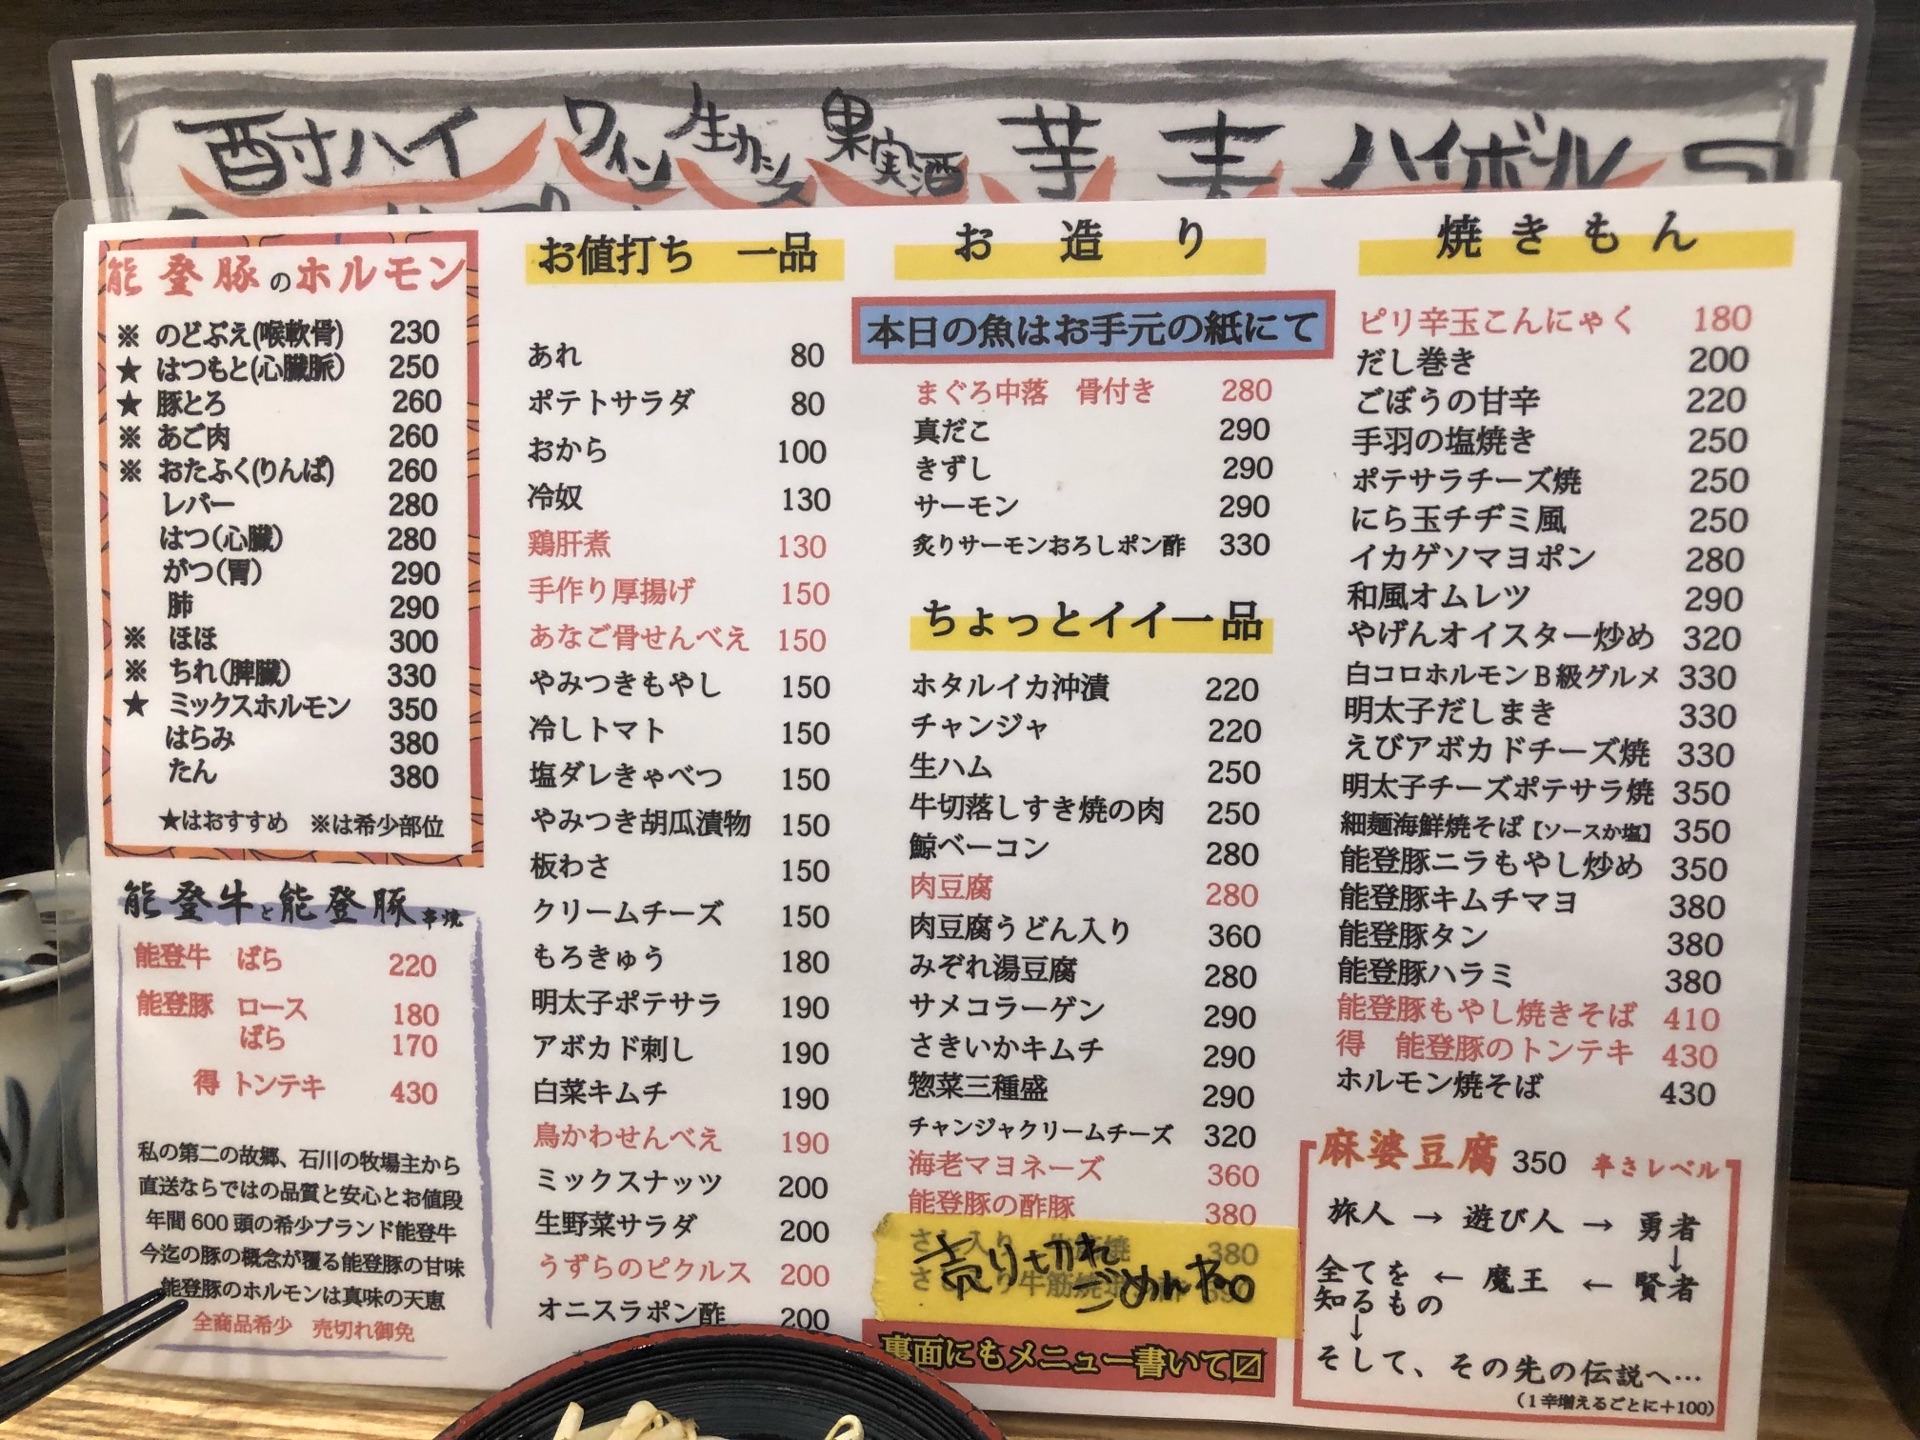 酎ハイ ワイン 生カシス 果実酒 芋 ハイボール
能登豚のホルモン
※ のどぶえ(喉軟骨) 230
★ はつもと(心臓脈) 250
★ 豚とろ 260
※ あご肉 260
※ おたふく(りんぱ) 260
レバー 280
はつ(心臓) 280
がつ(胃) 290
肺 290
※ ほほ 300
※ ちれ(脾臓) 330
★ ミックスホルモン 350
はらみ 380
たん 380
★はおすすめ ※は希少部位
能登牛と能登豚串焼
能登牛 ばら 220
能登豚 ロース 180
ばら 170
得 トンテキ 430
私の第二の故郷、石川の牧場主から
直送ならではの品質と安心とお値段
年間600頭の希少ブランド能登牛
今迄の豚の概念が覆る能登豚の甘味
能登豚のホルモンは真味の天恵
全商品希少 売切れ御免
お値打ち 一品
あれ 80
ポテトサラダ 80
おから 100
冷奴 130
鶏肝煮 130
手作り厚揚げ 150
あなご骨せんべえ 150
やみつきもやし 150
冷しトマト 150
塩ダレきゃべつ 150
やみつき胡瓜漬物 150
板わさ 150
クリームチーズ 150
もろきゅう 180
明太子ポテサラ 190
アボカド刺し 190
白菜キムチ 190
鳥かわせんべえ 190
ミックスナッツ 200
生野菜サラダ 200
うずらのピクルス 200
オニスラポン酢 200
お造り
本日の魚はお手元の紙にて
まぐろ中落 骨付き 280
真だこ 290
きずし 290
サーモン 290
炙りサーモンおろしポン酢 330
ちょっとイイ一品
ホタルイカ沖漬 220
チャンジャ 220
生ハム 250
牛切落しすき焼の肉 250
鯨ベーコン 280
肉豆腐 280
肉豆腐うどん入り 360
みぞれ湯豆腐 280
サメコラーゲン 290
さきいかキムチ 290
惣菜三種盛 290
チャンジャクリームチーズ 320
海老マヨネーズ 360
能登豚の酢豚 380
380
売り切れ
ごめんね
裏面にもメニュー書いて〼
焼きもん
ピリ辛玉こんにゃく 180
だし巻き 200
ごぼうの甘辛 220
手羽の塩焼き 250
ポテサラチーズ焼 250
にら玉チヂミ風 250
イカゲソマヨポン 280
和風オムレツ 290
やげんオイスター炒め 320
白コロホルモンB級グルメ 330
明太子だしまき 330
えびアボカドチーズ焼 330
明太子チーズポテサラ焼 350
細麺海鮮焼そば【ソースか塩】 350
能登豚ニラもやし炒め 350
能登豚キムチマヨ 380
能登豚タン 380
能登豚ハラミ 380
能登豚もやし焼きそば 410
得 能登豚のトンテキ 430
ホルモン焼そば 430
麻婆豆腐 350 辛さレベル
旅人 → 遊び人 → 勇者
↓
全てを知るもの ← 魔王 ← 賢者
↓
そして、その先の伝説へ…
(1辛増えるごとに+100)